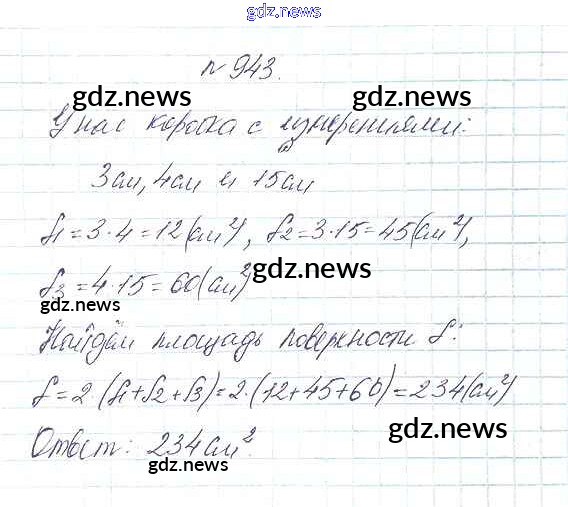 gdz.news
№ 943.
gdz.news gdz.news
У нас коробка с измерениями:
3см, 4см и 15см
S1 = 3 · 4 = 12(см²), S2 = 3·15 = 45(см²),
S3 = 4·15 = 60(см²)
gdz.news
gdz.news
Найдём площадь поверхности S:
S = 2·(S1+S2+S3) = 2·(12+45+60) = 234(см²)
gdz.news
Ответ: 234см².
gdz.news